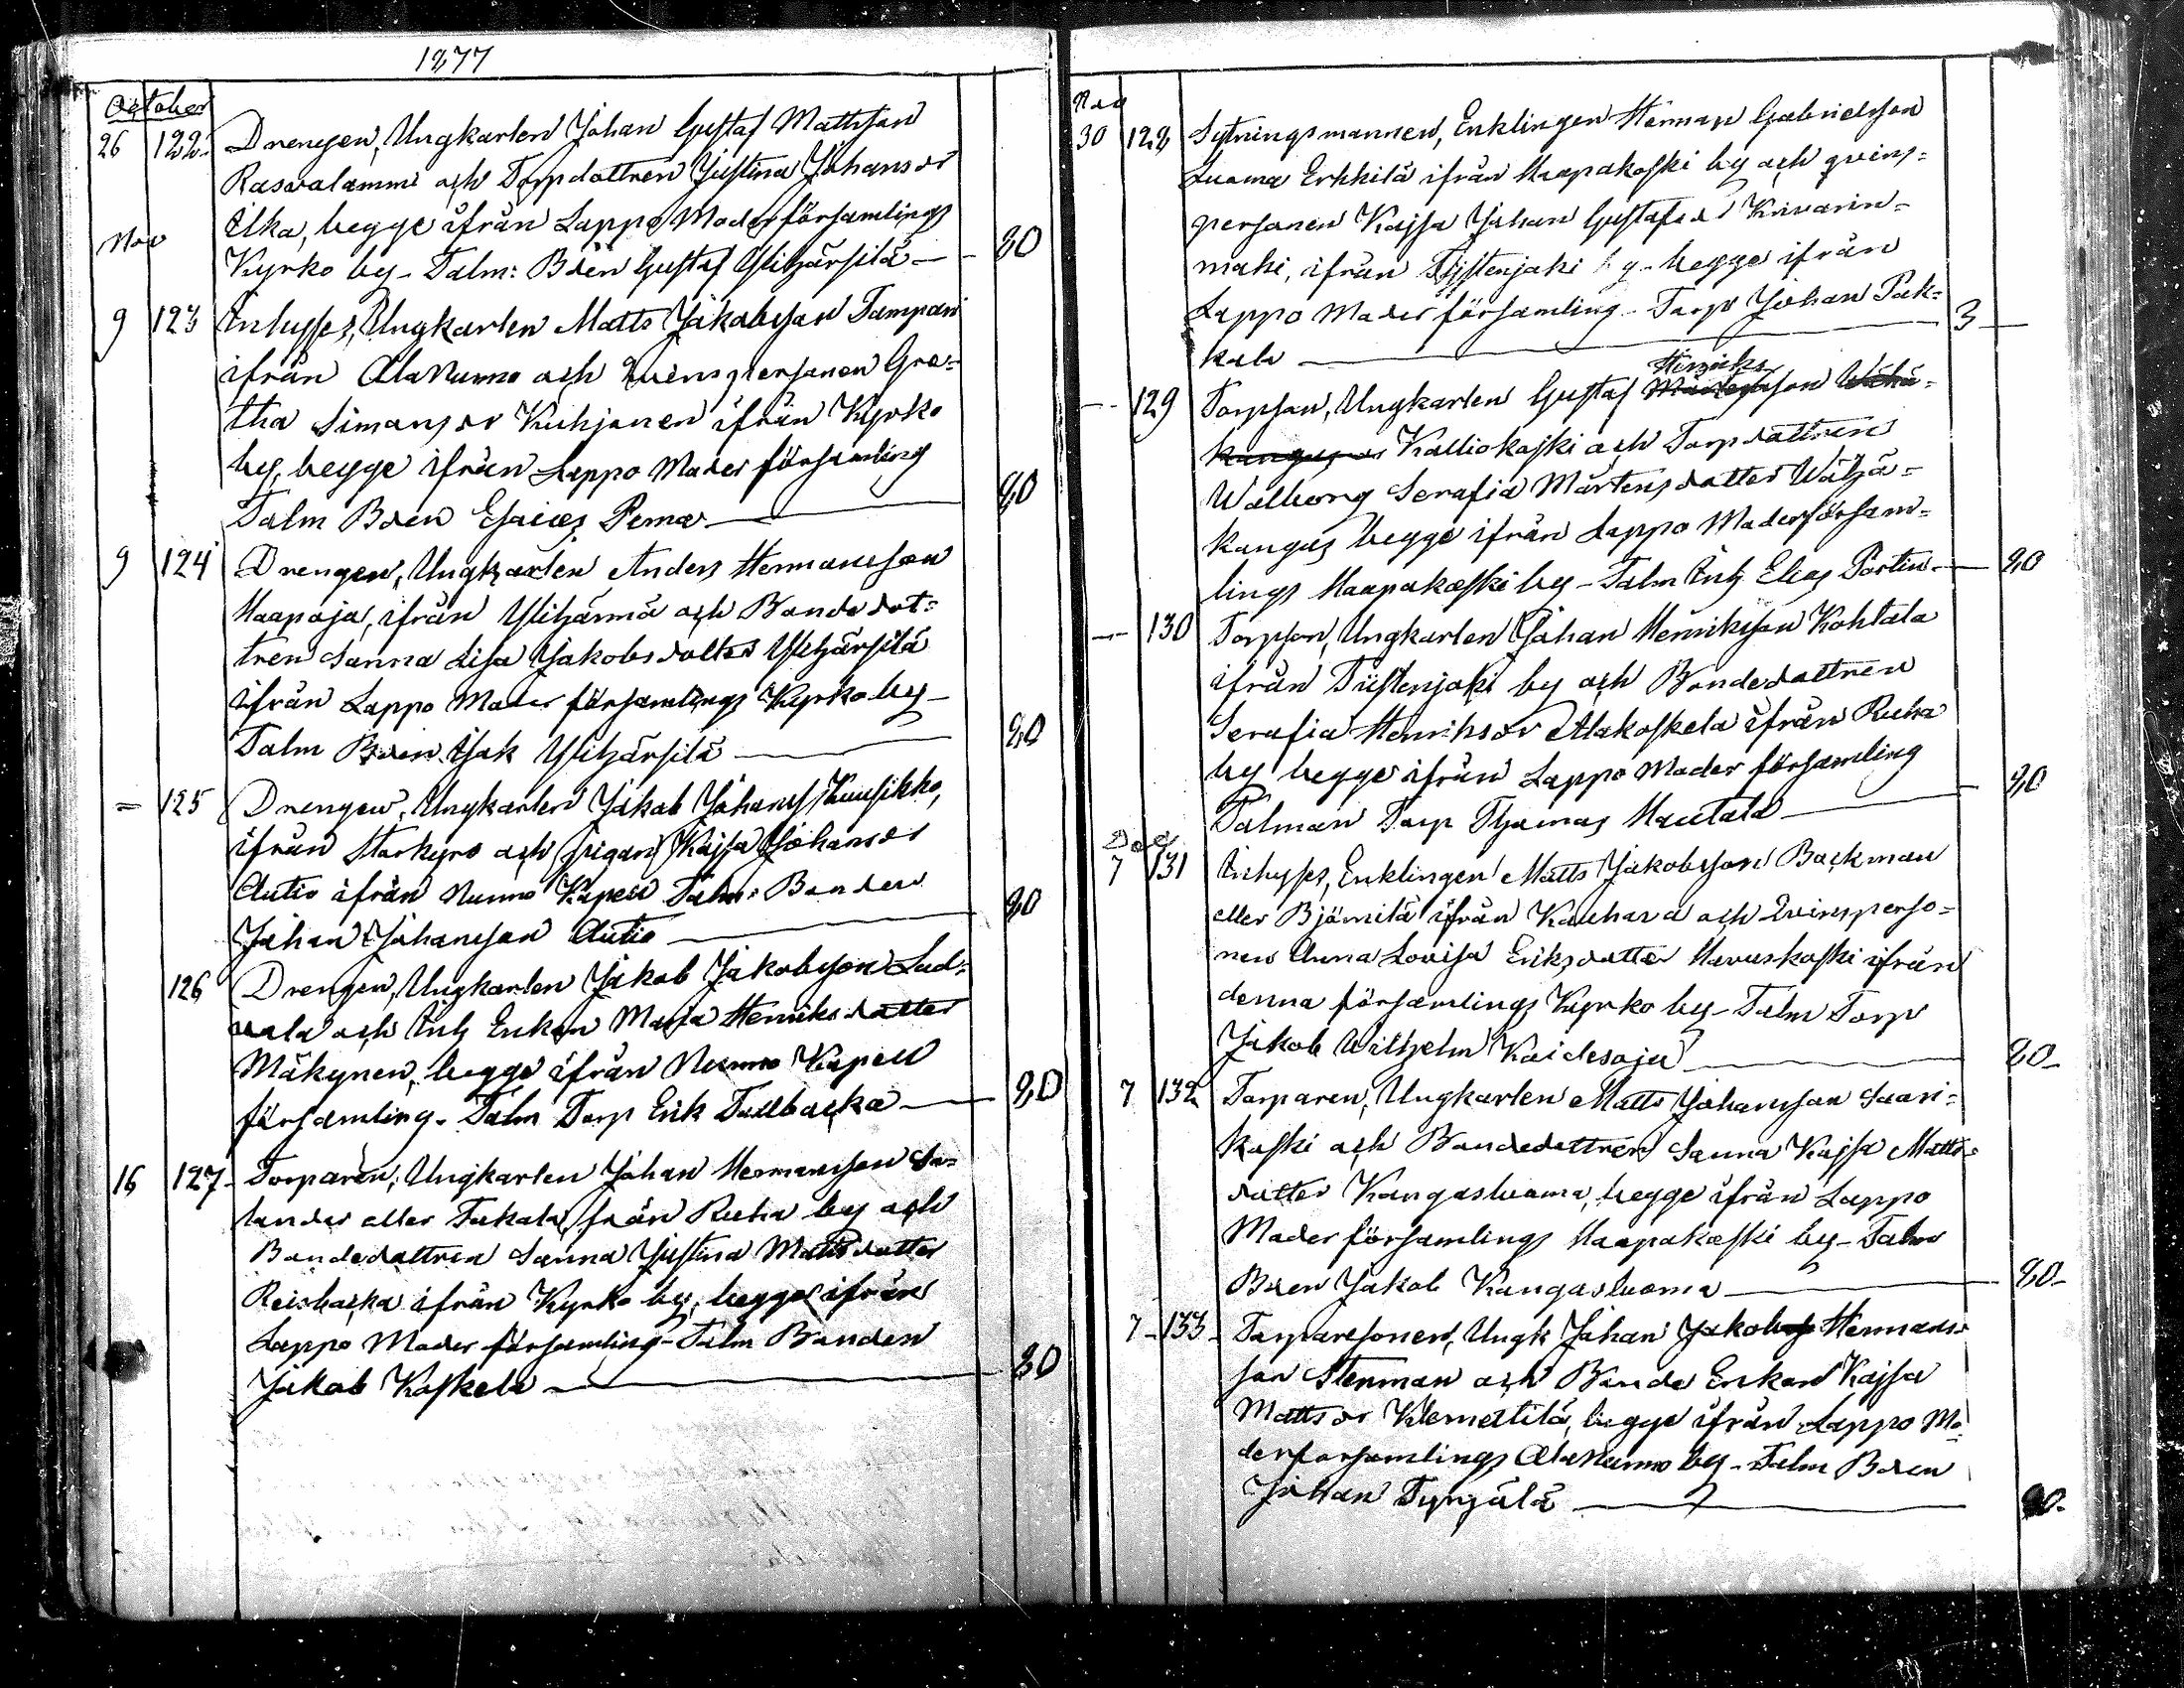 1877
October
26 122. Drengen, Ungkarlen Johan Gustaf Mattsson
Rasvalammi och Torpdottren Justina Johansdr
Ilka, begge ifrån Lappo Moderförsamlings
Nov
Kyrko by - Talm: Bden Gustaf Ylihärsilä — 80
9 123 Inhyses, Ungkarlen Matts Jakobsson Tampari
ifrån Ala Nurmo och Qvinspersonen Gre=
tha Simonsdr Kuhjonen ifrån Kyrko
by, begge ifrån Lappo Moder församling
Talm Bden Esaias Perna — 80
9 124 Drengen, Ungkarlen Anders Hermansson
Haapoja, ifrån Ylihärmä och Bondedot=
tren Sanna Lisa Jakobsdotter Ylihärsilä
ifrån Lappo Moder församlings Kyrko by -
Talm Bden Isak Ylihärsilä — 80
= 125 Drengen, Ungkarlen Jakob Johanss Kuusikko,
ifrån Storkyro och Pigan Kajsa Johansdr
Autio ifrån Nurmo Kapell Talm: Bonden
Johan Johansson Autio — 80
126 Drengen, Ungkarlen Jakob Jakobsson Lad=
vala och Inh Enkan Maria Henriksdotter
Mäkynen, begge ifrån Nurmo Kapell
församling. Talm Torp Erik Tallbacka — 80
16 127. Torparen, Ungkarlen Johan Hermansson Sa=
lander eller Takala, från Ruha by och
Bondedottren Sanna Justina Mattsdotter
Reisbacka ifrån Kyrko by, begge ifrån
Lappo Moder församling - Talm Bonden
Jakob Koskela — 80
Nov
30 128 Sytningsmannen, Enklingen Herman Gabrielsson
Luoma Erkkilä ifrån Haapakoski by och qvins=
personen Kajsa Johan Gustafsdr Knivarin=
mäki, ifrån Tijstenjoki by - begge ifrån
Lappo Moder församling - Torp Johan Pak=
kala — 3 —
Henriks
— 129 Torpson, Ungkarlen Gustaf Mårtensson Wähä=
kangas Kalliokoski och Torpdottren
Walborg Serafia Mårtensdotter Wähä=
kangas begge ifrån Lappo Moderförsam=
lings Haapakoski by - Talm Inh Elias Portin — 80
— 130 Torpson, Ungkarlen Johan Henriksson Kohtala
ifrån Tiistenjoki by och Bondedottren
Serafia Henriksdr Alakoskela ifrån Ruha
by begge ifrån Lappo Moder församling
Talman Torp Thomas Hautala — 80
Dec
7 131 Inhyses, Enklingen Matts Jakobsson Backman
eller Björnilä ifrån Kauhava och Qvinsperso=
nen Anna Lovisa Eriksdotter Haruskoski ifrån
denna församlings Kyrko by - Talm Torp
Jakob Wilhelm Kaidesoja — 80 -
7 132 Torparen, Ungkarlen Matts Johansson Saari=
koski och Bondedottren Sanna Kajsa Matts=
dotter Kangasluoma, begge ifrån Lappo
Moder församlings Haapakoski by - Talm
Bden Jakob Kangasluoma — 80 -
7 - 133 - Torparesonen, Ungk Johan Jakobss Hermans=
son Stenman och Bonde Enkan Kajsa
Mattsdr Klemettilä, begge ifrån Lappo Mo=
derförsamlings Ala Nurmo by - Talm Bden
Johan Tyrjälä — 80 -